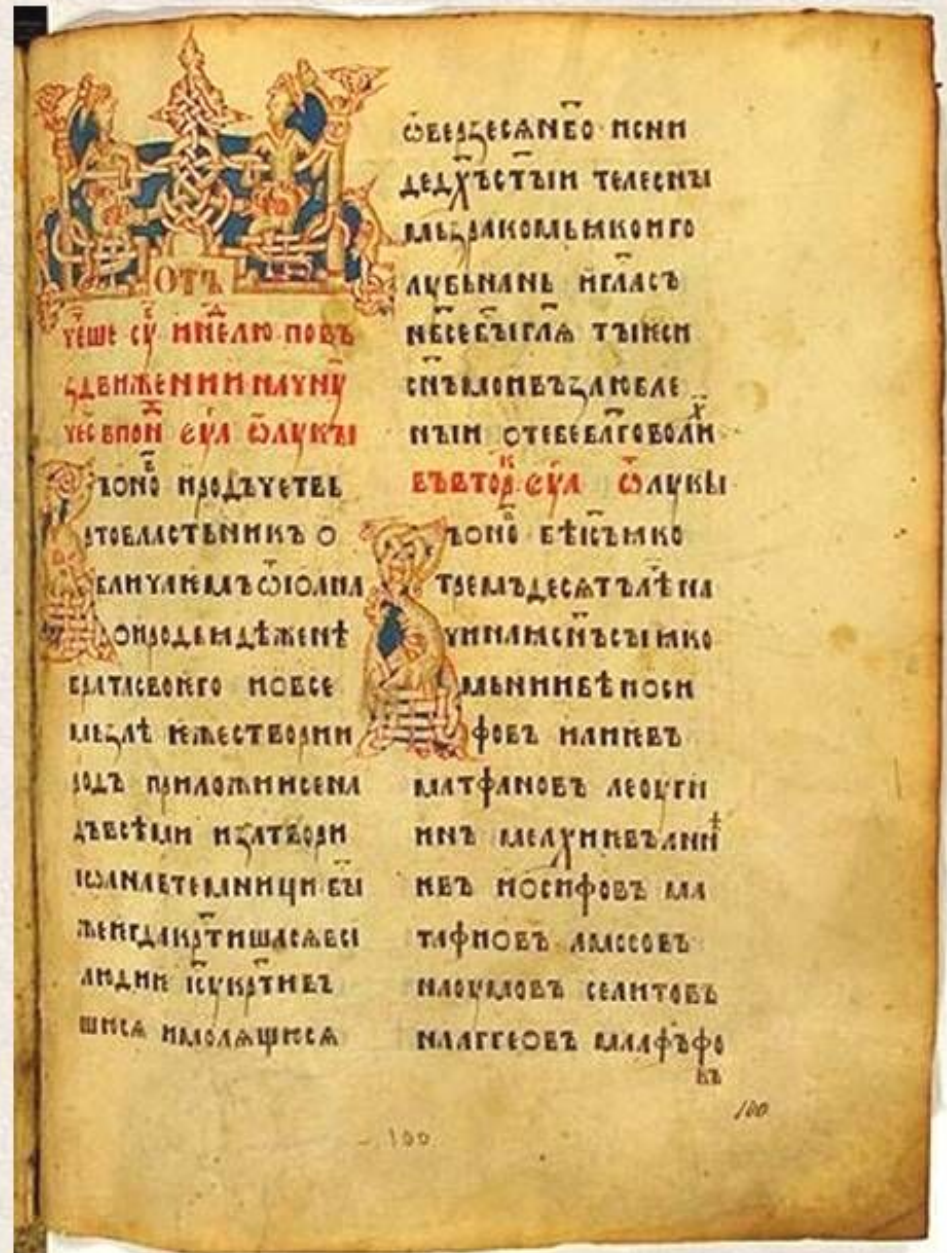 ОТЪ
чⷭ҇еше сꙋⷠ҇ и неⷣ҇лю по въ
ꙁдвижении начнꙋⷮ҇
чес в понⷣ҇ еꙋⷢ҇л ѿ лꙋкꙑ
ъ оноⷡ҇ иродъ четвь
ртовластьникъ о
бличаѥмъ ѿ іоана
о иродьꙗдѣ женѣ
брата своѥго и о все
мь ꙁлѣ ѥже створи и
родъ приложи и се на
дъ всѣми и ꙁатвори
іѡана в темници бꙑⷭ҇
же ѥгда крⷭ҇тишасѧ вси
людиѥ і҃су кр҃тивъ
шюсѧ и молѧщюсѧ
ѿверꙁесѧ н҃бо и сни
де д҃хъ ст҃ꙑи телеснꙑ
мь ꙁракомь ꙗко и го
лубь на нь и глⷭ҇асъ
с н҃бсе бꙑⷭ҇ гл҃ѧ тꙑ ѥси
с҃нъ мои въꙁлюбле
нꙑи о тебе бл҃говолиⷯ҇
въ вторⷦ҇ еꙋⷢ҇л ѿ лукꙑ
ъ оноⷡ҇ бѣ і҃съ ꙗко
тремъ десѧтъ лѣⷮ҇ на
чинаꙗ с҃нъ сꙑ ꙗко
мьнии бѣ иоси
фовъ илиѥвъ
матфановъ леоугꙑ
инъ мелхиивъ анниⷩ҇
ивъ иосифовъ ма
тафиовъ амосовъ
наоумовъ селитовъ
наггеовъ маафъфо
въ
100
100